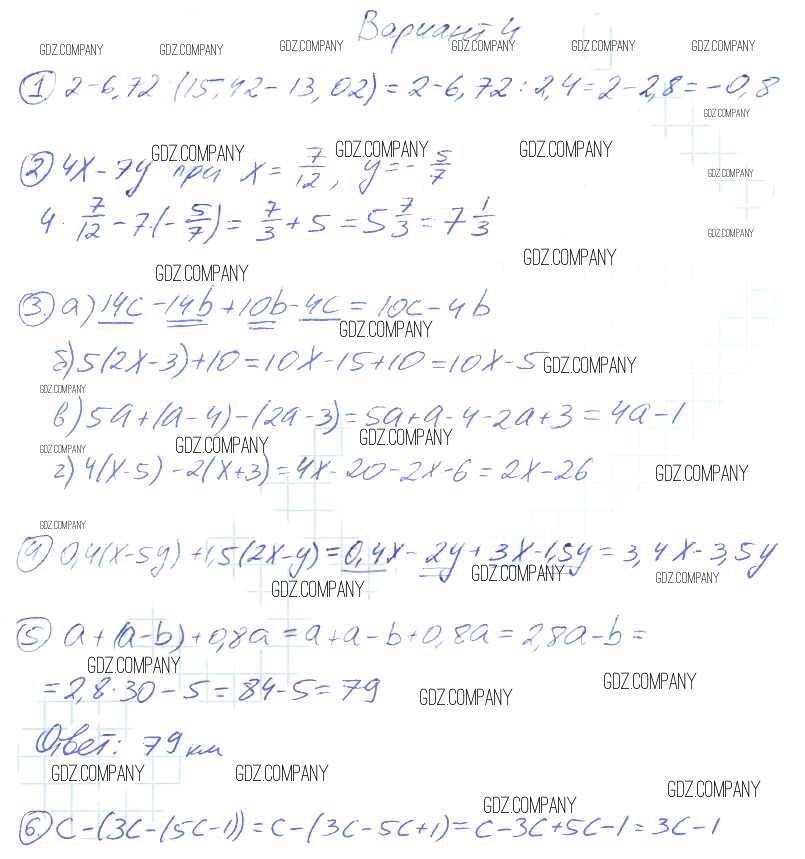 Вариант 4
GDZ.COMPANY GDZ.COMPANY GDZ.COMPANY GDZ.COMPANY GDZ.COMPANY GDZ.COMPANY
1 2-6,72:(15,42-13,02)=2-6,72:2,4=2-2,8=-0,8
GDZ.COMPANY
GDZ.COMPANY GDZ.COMPANY GDZ.COMPANY
2 4x-7y при x=7/12, y=-5/7
GDZ.COMPANY
4·7/12-7·(-5/7)=7/3+5=5 7/3=7 1/3
GDZ.COMPANY
GDZ.COMPANY GDZ.COMPANY
3. а) 14c-14b+10b-4c=10c-4b
GDZ.COMPANY
б) 5(2x-3)+10=10x-15+10=10x-5 GDZ.COMPANY
GDZ.COMPANY
в) 5a+(a-4)-(2a-3)=5a+a-4-2a+3=4a-1
GDZ.COMPANY GDZ.COMPANY GDZ.COMPANY
г) 4(x-5)-2(x+3)=4x-20-2x-6=2x-26 GDZ.COMPANY
GDZ.COMPANY
4 0,4(x-5y)+1,5(2x-y)=0,4x-2y+3x-1,5y=3,4x-3,5y
GDZ.COMPANY GDZ.COMPANY GDZ.COMPANY
5 a+(a-b)+0,8a=a+a-b+0,8a=2,8a-b=
GDZ.COMPANY
=2,8·30-5=84-5=79 GDZ.COMPANY GDZ.COMPANY
Ответ: 79 км
GDZ.COMPANY GDZ.COMPANY GDZ.COMPANY GDZ.COMPANY
6. c-(3c-(5c-1))=c-(3c-5c+1)=c-3c+5c-1=3c-1